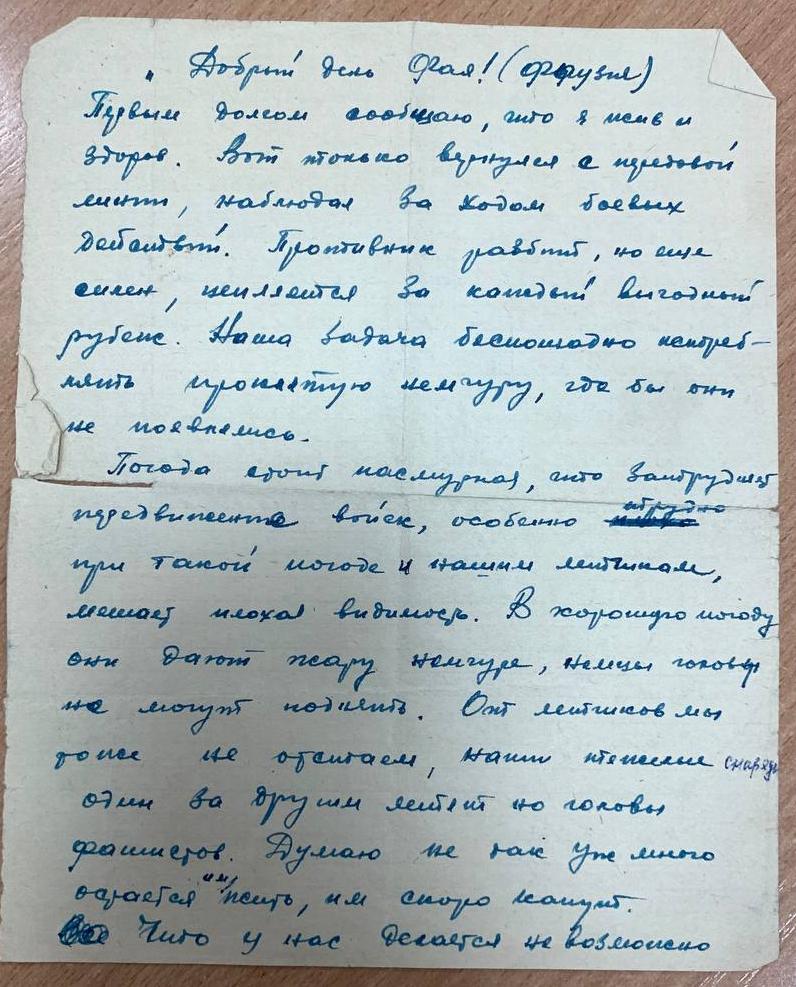 „ Добрый день Фая! (Ффузия)
Первым долгом сообщаю, что я жив и
здоров. Вот только вернулся с передовой
линии, наблюдал за ходом боевых
действий. Противник разбит, но еще
силен, цепляется за каждый выгодный
рубеж. Наша задача беспощадно истреб-
лять проклятую немчуру, где бы они
не появлялись.
Погода стоит пасмурная, что затрудняет
передвижение войск, особенно трудно
при такой погоде и нашим летчикам,
мешает плохая видимость. В хорошую погоду
они дают жару немчуре, немцы головы
не могут поднять. От летчиков мы
тоже не отстаем, наши тяжелые снаряды
один за другим летят на головы
фашистов. Думаю не так уж много
остается им жить, им скоро капут.
Что у нас делается не возможно